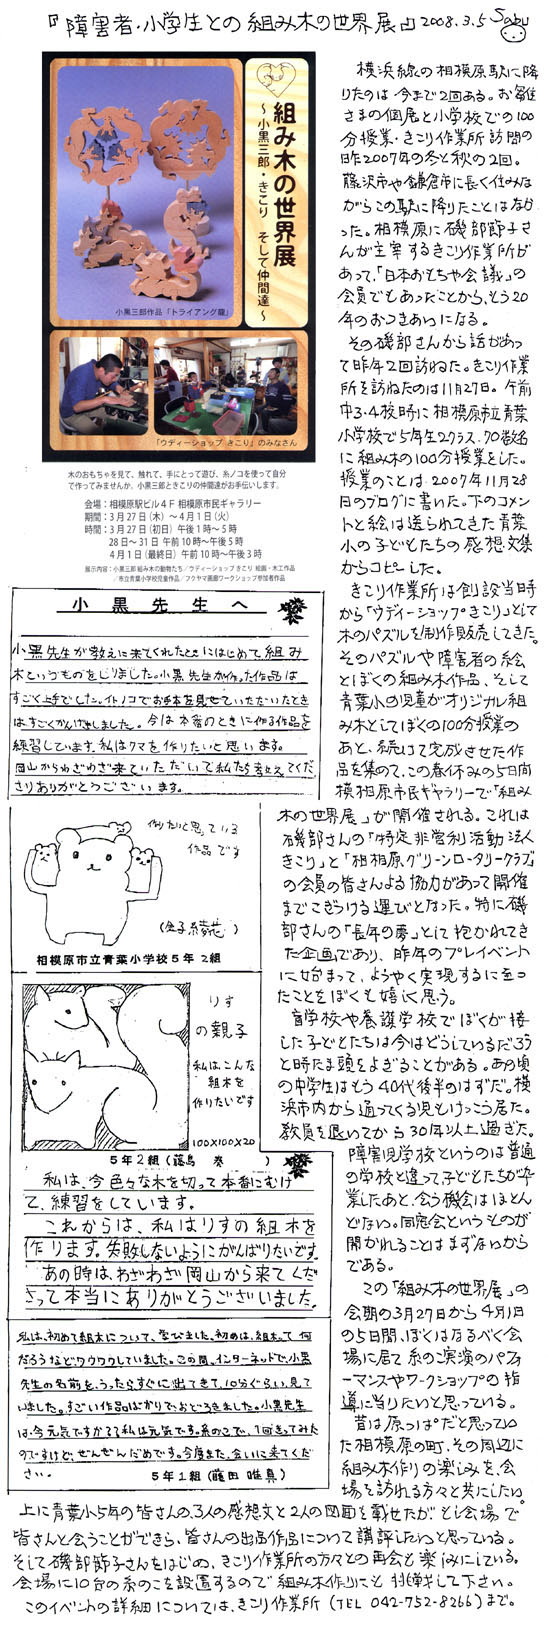 『障害者・小学生との組み木の世界展』2008.3.5 Sabu
組み木の世界展
〜小黒三郎・きこり そして仲間達〜
小黒三郎作品「トライアング龍」
「ウディーショップ きこり」のみなさん
木のおもちゃを見て、触れて、手にとって遊び、糸ノコを使って自分
で作ってみませんか。小黒三郎ときこりの仲間達がお手伝いします。
会場：相模原駅ビル4F 相模原市民ギャラリー
期間：3月27日（木）〜4月1日（火）
時間：3月27日（初日）午後1時〜5時
28日〜31日 午前10時〜午後5時
4月1日（最終日）午前10時〜午後3時
展示内容：小黒三郎 組み木の動物たち／ウディーショップ きこり 絵画・木工作品
／市立青葉小学校児童作品／フクヤマ画廊ワークショップ参加者作品
小黒先生へ
小黒先生が教えに来てくれたときにはじめて組み
木というものをしりました。小黒先生が作った作品は
すごく上手でした。イトノコでお手本を見せていただいたとき
はすごくかんげきしました。今は本番のときに作る作品を
練習しています。私はクマを作りたいと思います。
岡山からわざわざ来ていただいて私たちに教えてくだ
さりありがとうございます。
作りたいと思っている
作品です
相模原市立青葉小学校5年2組
りす
の親子
私は、こんな
組木を
作りたいです
100×100×20
5年2組
私は、今色々な木を切って本番にむけ
て、練習をしています。
これからは、私はりすの組木を
作ります。失敗しないようにがんばりたいです。
あの時は、わざわざ岡山から来てくだ
さって本当にありがとうございました。
私は、初めて組木について、学びました。初めは、組木って何
だろうなどワクワクしていました。この間、インターネットで、小黒
先生の名前を、うったらすぐに出てきて、10分ぐらい、見て
いました。すごい作品ばかりで、おどろきました。小黒先生
は、今元気ですか？私は元気です。糸のこで、1回きってみた
のですけど、ぜんぜんだめです。今度また、会いに来てくだ
さい。
5年1組（藤田唯真）
横浜線の相模原駅に降
りたのは今まで2回ある。お雛
さまの個展と小学校での100
分授業・きこり作業所訪問の
昨2007年の冬と秋の2回。
藤沢市や鎌倉市に長く住みな
がらこの駅に降りたことはなか
った。相模原に磯部節子さ
んが主宰するきこり作業所が
あって、「日本おもちゃ会議」の
会員でもあったことから、もう20
年のおつきあいになる。
その磯部さんから話があっ
て昨年2回訪ねた。きこり作業
所を訪ねたのは11月27日。午前
中3・4校時に相模原市立青葉
小学校で5年生2クラス、70数名
に組み木の100分授業をした。
授業のことは2007年11月28
日のブログに書いた。下のコメン
トと絵は送られてきた青葉
小の子どもたちの感想文集
からコピーした。
きこり作業所は創設当時
から「ウディーショップきこり」として
木のパズルを制作販売してきた。
そのパズルや障害者の絵
とぼくの組み木作品、そして
青葉小の児童がオリジナル組
み木としてぼくの100分授業の
あと、続けて完成させた作
品を集めて、この春休みの5日間
相模原市民ギャラリーで「組み
木の世界展」が開催される。これは
磯部さんの「特定非営利活動法人
きこり」と「相模原グリーンロータリークラブ」
の会員の皆さんよる協力があって開催
までこぎつける運びとなった。特に磯
部さんの「長年の夢」として抱かれてき
た企画であり、昨年のプレイベント
に始まって、ようやく実現するに至っ
たことをぼくも嬉しく思う。
盲学校や養護学校でぼくが接
した子どもたちは今はどうしているだろう
と時たま頭をよぎることがある。あの頃
の中学生はもう40代後半のはずだ。横
浜市内から通ってくる児もけっこう居た。
教員を退いてから30年以上過ぎた。
障害児学校というのは普通
の学校と違って、子どもたちが卒
業したあと、会う機会はほとん
どない。同窓会というものが
開かれることはまずないから
である。
この「組み木の世界展」の
会期の3月27日から4月1日
の5日間、ぼくはなるべく会
場に居て糸のこ実演のパフォ
ーマンスやワークショップの指
導に当りたいと思っている。
昔は原っぱだと思ってい
た相模原の町、その周辺に
組み木作りの楽しみを、会
場を訪れる方々と共にしたい。
上に青葉小5年の皆さんの、3人の感想文と2人の図面を載せたが、もし会場で
皆さんと会うことができたら、皆さんの出品作品について講評したいと思っている。
そして磯部節子さんをはじめ、きこり作業所の方々との再会も楽しみにしている。
会場に10台の糸のこを設置するので組み木作りにも挑戦して下さい。
このイベントの詳細については、きこり作業所（TEL 042-752-8266）まで。